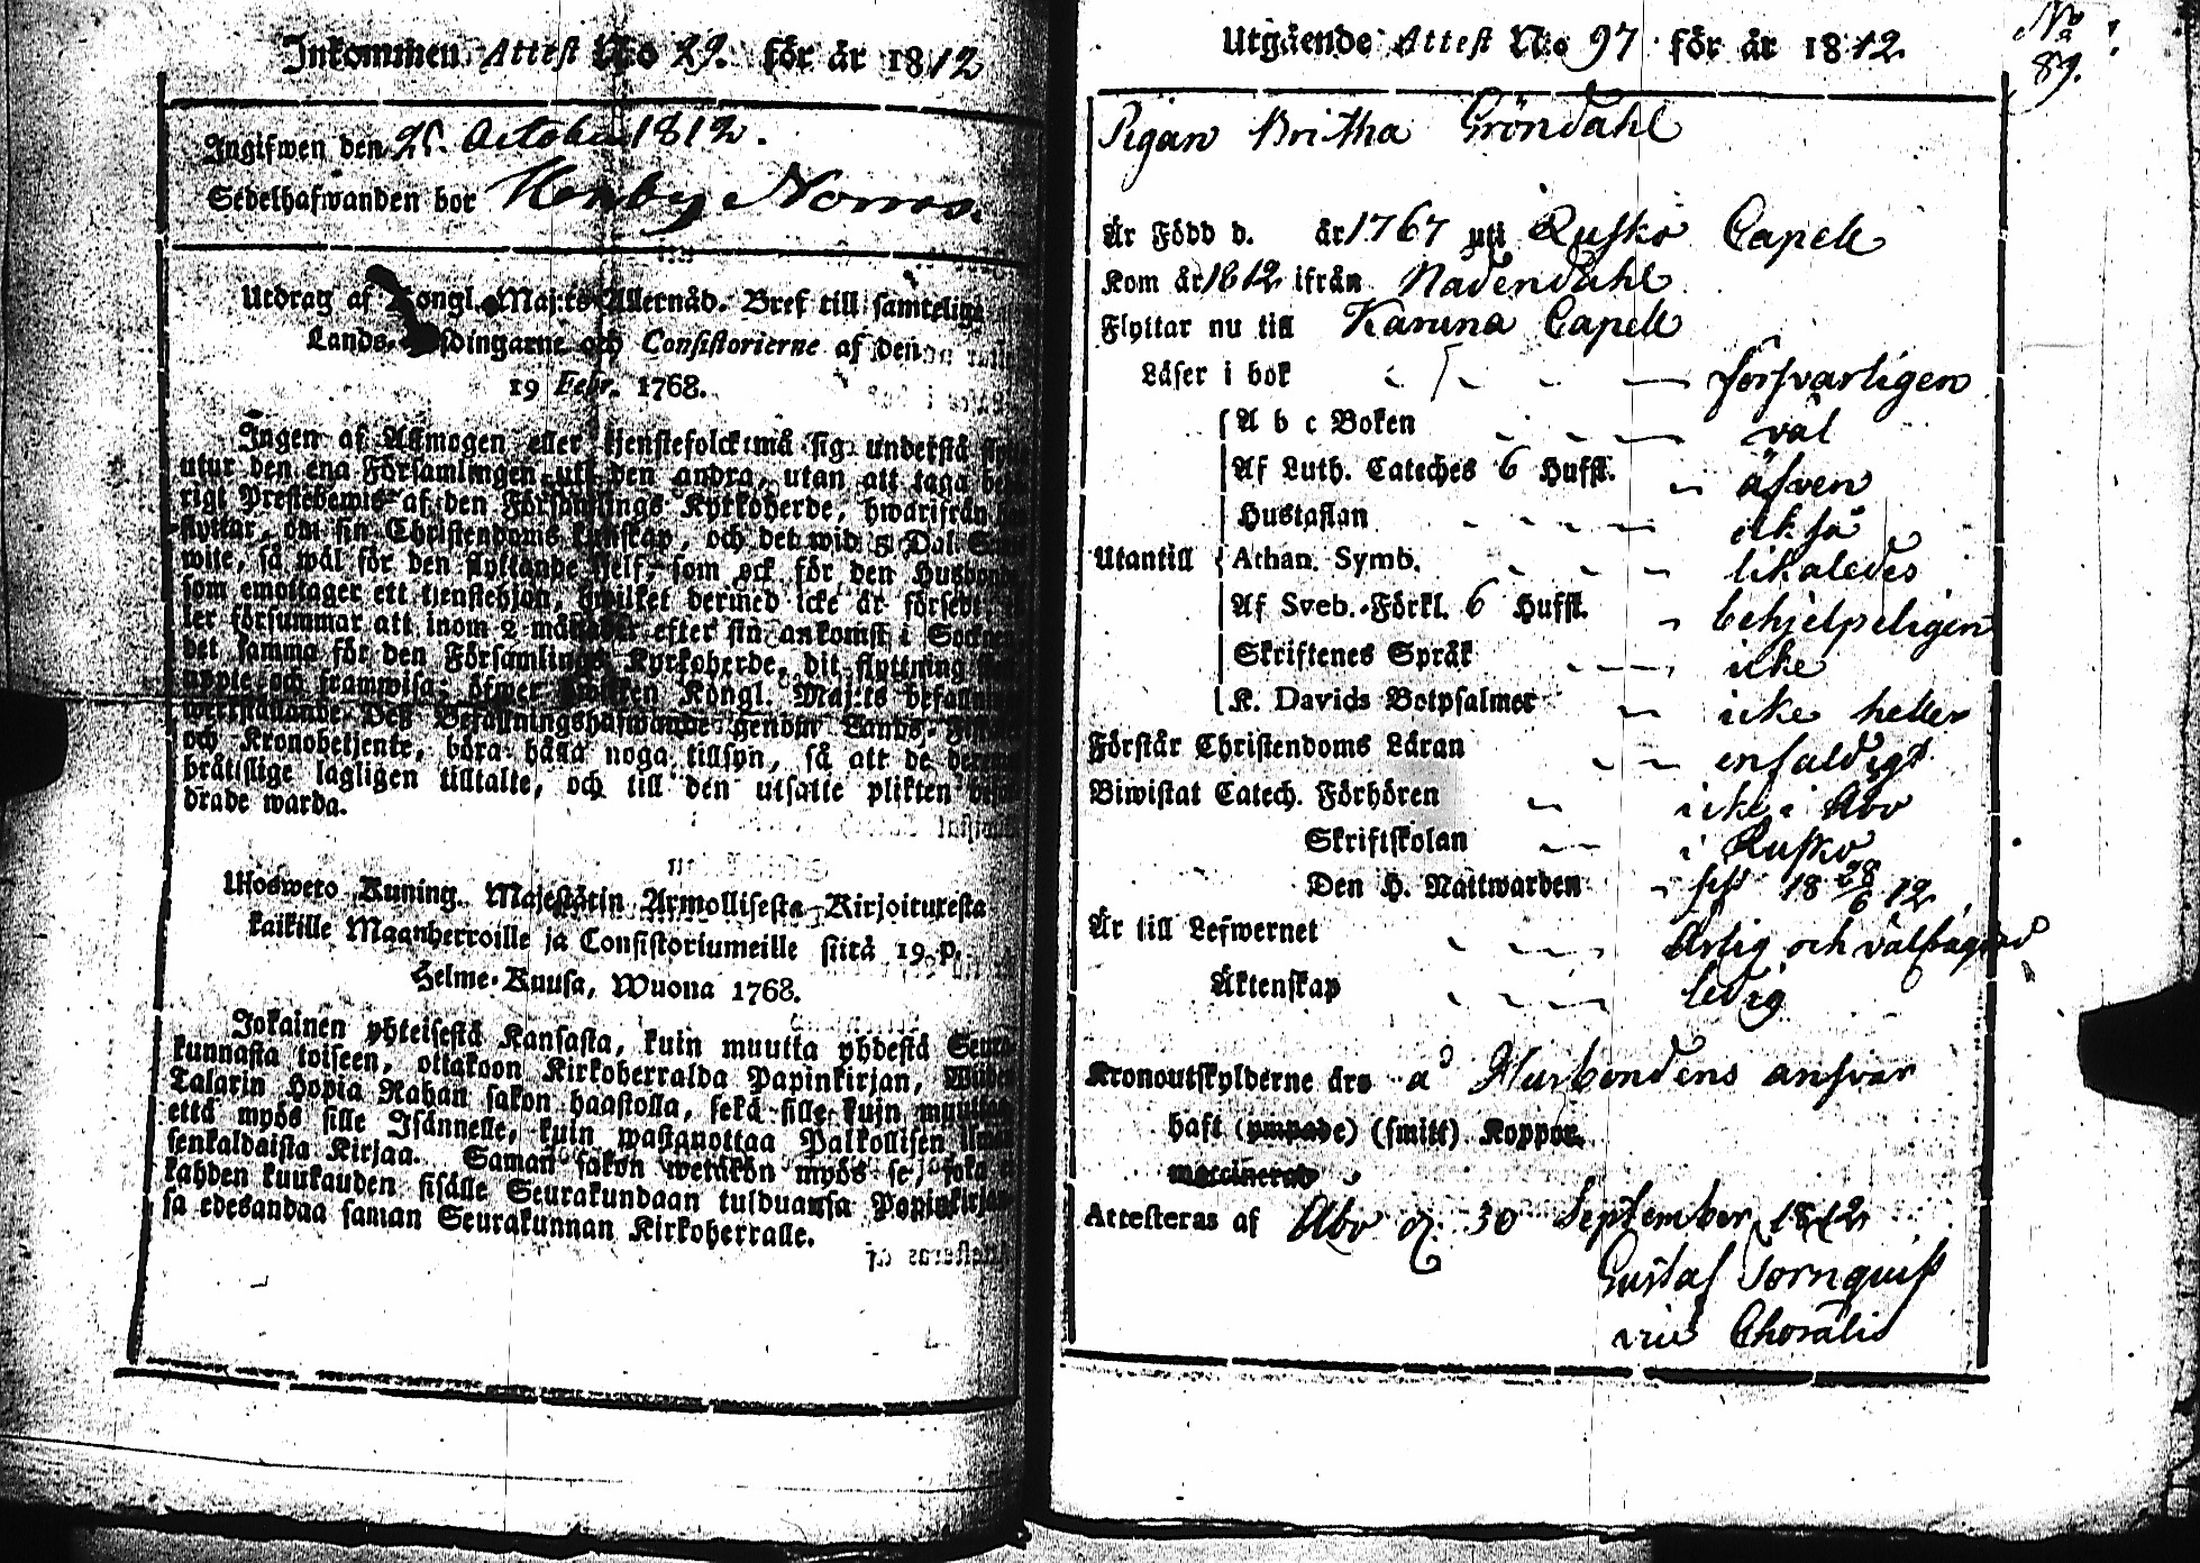 Inkommen Attest No 29. för år 1812
Ingifwen den 25. October 1812.
Sedelhafwanden bor Norrs.
Utdrag af Kongl. Maj:ts Allernåd. Bref till samtelige
Lands- dingarne och Consistorierne af den
19 Febr. 1768.
Ingen af Allmogen eller tjenstefolck må sig understå
utur den ena Församlingen uti den andra, utan att taga
rigt Prestebewis af den Församlings Kyrkoherde, hwarifrån
flyttar, om sin Christendoms kunskap, och det wid 5 Dal.
wite, så wäl för den flyttande sjelf, som ock för den
som emottager ett tjenstehjon, hwilket dermed icke är försedt,
ler försummar att inom 2 månader efter sin ankomst i
det samma för den Församlings Kyrkoherde, dit flyttning
uppte och framwisa; öfwer hwilken Kongl. Maj:ts
werkställande Deß Befallningshafwande genom Lands-
och Kronobetjente, böra hålla noga tillsyn, så att de
bråtslige lagligen tilltalte, och till den utsatte plikten
drade warda.
Ulosweto Kuning. Majestätin Armollisesta Kirjoituresta
kaikille Maanherroille ja Consistoriumeille siitä 19 p.
Helme-Kuusa, Wuona 1768.
Jokainen yhteisestä Kansasta, kuin muutta yhdestä
kunnasta toiseen, ottakoon Kirkoherralda Papinkirjan,
Talarin Hopia Rahan sakon haastolla, sekä sille kuin
että myös sille Isännelle, kuin wastanottaa Palkollisen
senkaldaista Kirjaa. Saman sakon wetäkön myös se, joka
kahden kuukauden sisälle Seurakundaan tulduansa
sa edesandaa saman Seurakunnan Kirkoherralle.
Utgående Attest No 97 för år 1812
No
89.
Pigan Britha Gröndahl
Är Född d. år 1767 uti Rusko Capell
Kom år 1812 ifrån Nadendahl
Flyttar nu till Karuna Capell
Läser i bok försvarligen
A b c Boken väl
Af Luth. Cateches 6 Hufst. äfven
Hustaflan ock så
Utantill Athan. Symb. likaledes
Af Sveb. Förkl. 6 Hufst. behjelpeligen
Skriftenes Språk icke
K. Davids Botpsalmer icke heller
Förstår Christendoms Läran enfaldigt
Biwistat Catech. Förhören icke i Abo
Skriftskolan i Rusko
Den H. Nattwarden sist 18 28/6 12
Är till Lefwernet ärlig och välfrägdad
Äktenskap ledig
Kronoutskylderne äro å Husbondens ansvar
haft (ympade) (smitt) Koppor.
vaccinerad
Attesteras af Abo d. 30 September 1812
Gustaf Törnquist
vice Choralis